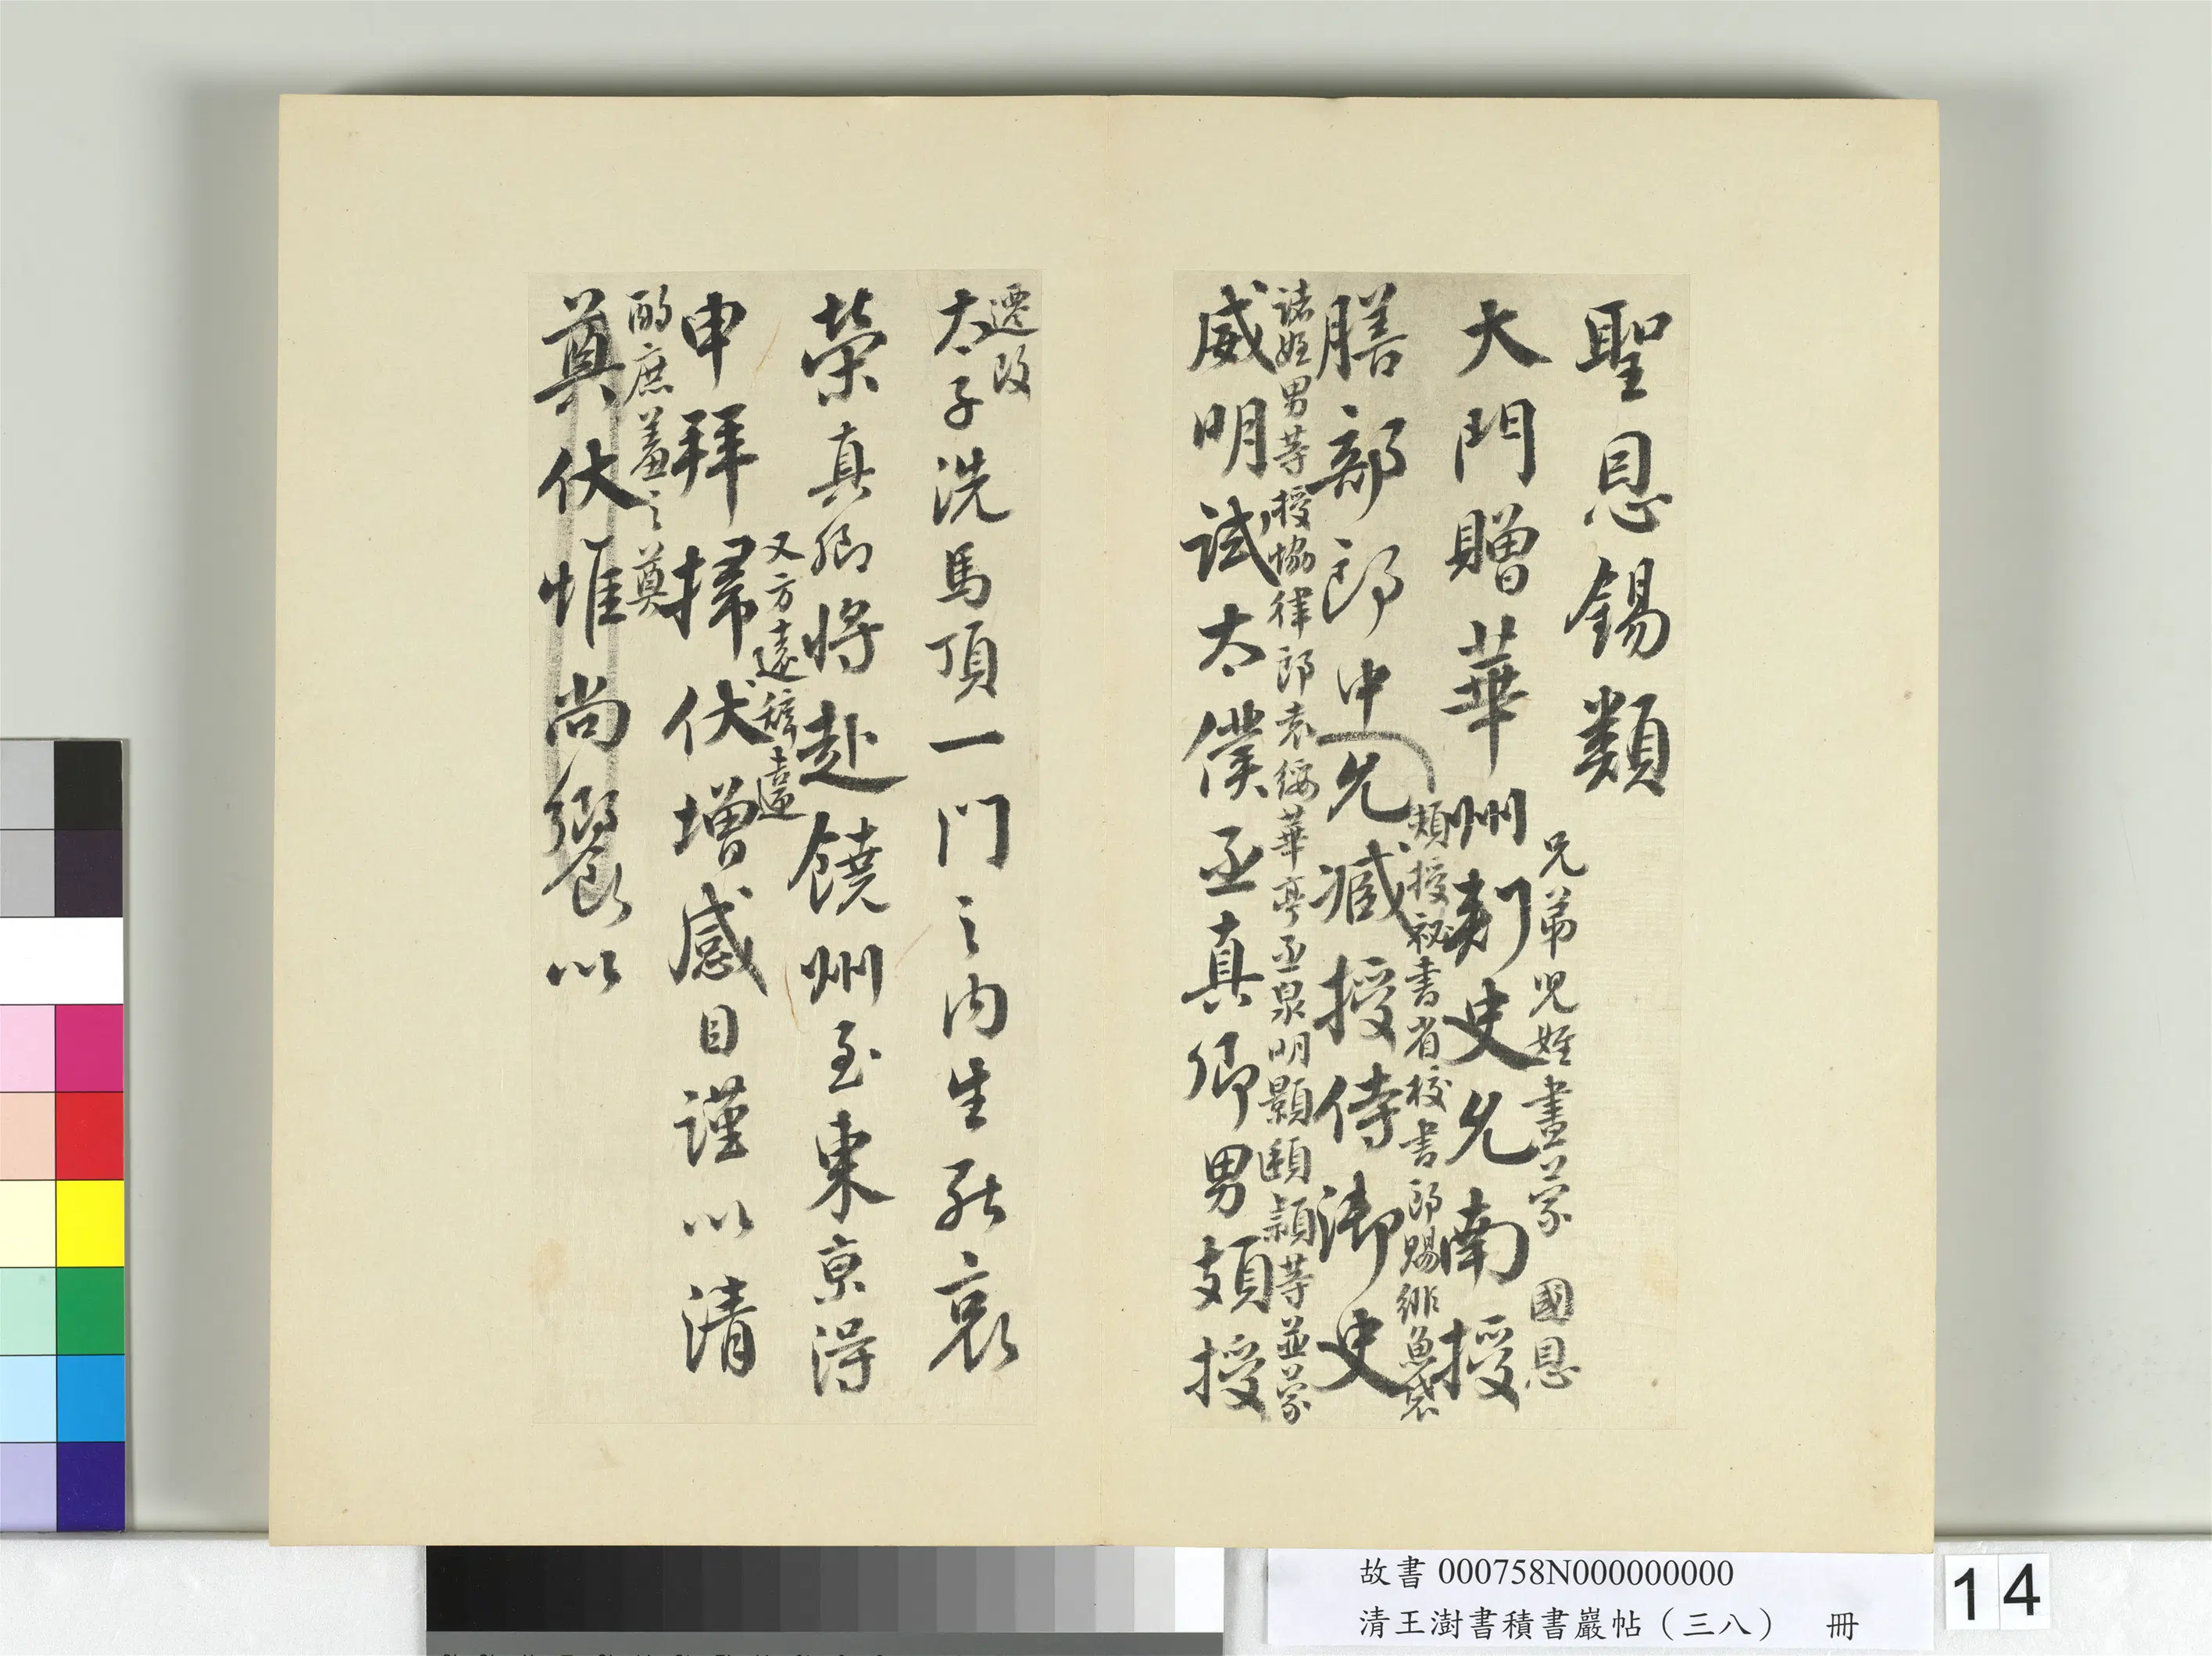 聖恩錫類
兄弟児姪盡蒙 國恩
大門贈華州刾史允南授
類授秘書省校書郎賜緋魚袋
膳部郎中允臧授侍御史
諸姪男等授協律郎
泉明顯頤潁等並蒙
威明試太僕丞真卿男頗授
遷改
太子洗馬頂一門之內生死哀
榮真卿將赴饒州至東京得
申拜掃伏增感目謹以清
酌庶羞之奠
奠伏惟尚饗以
故書 000758N000000000
清王澍書積書巖帖（三八） 冊
14